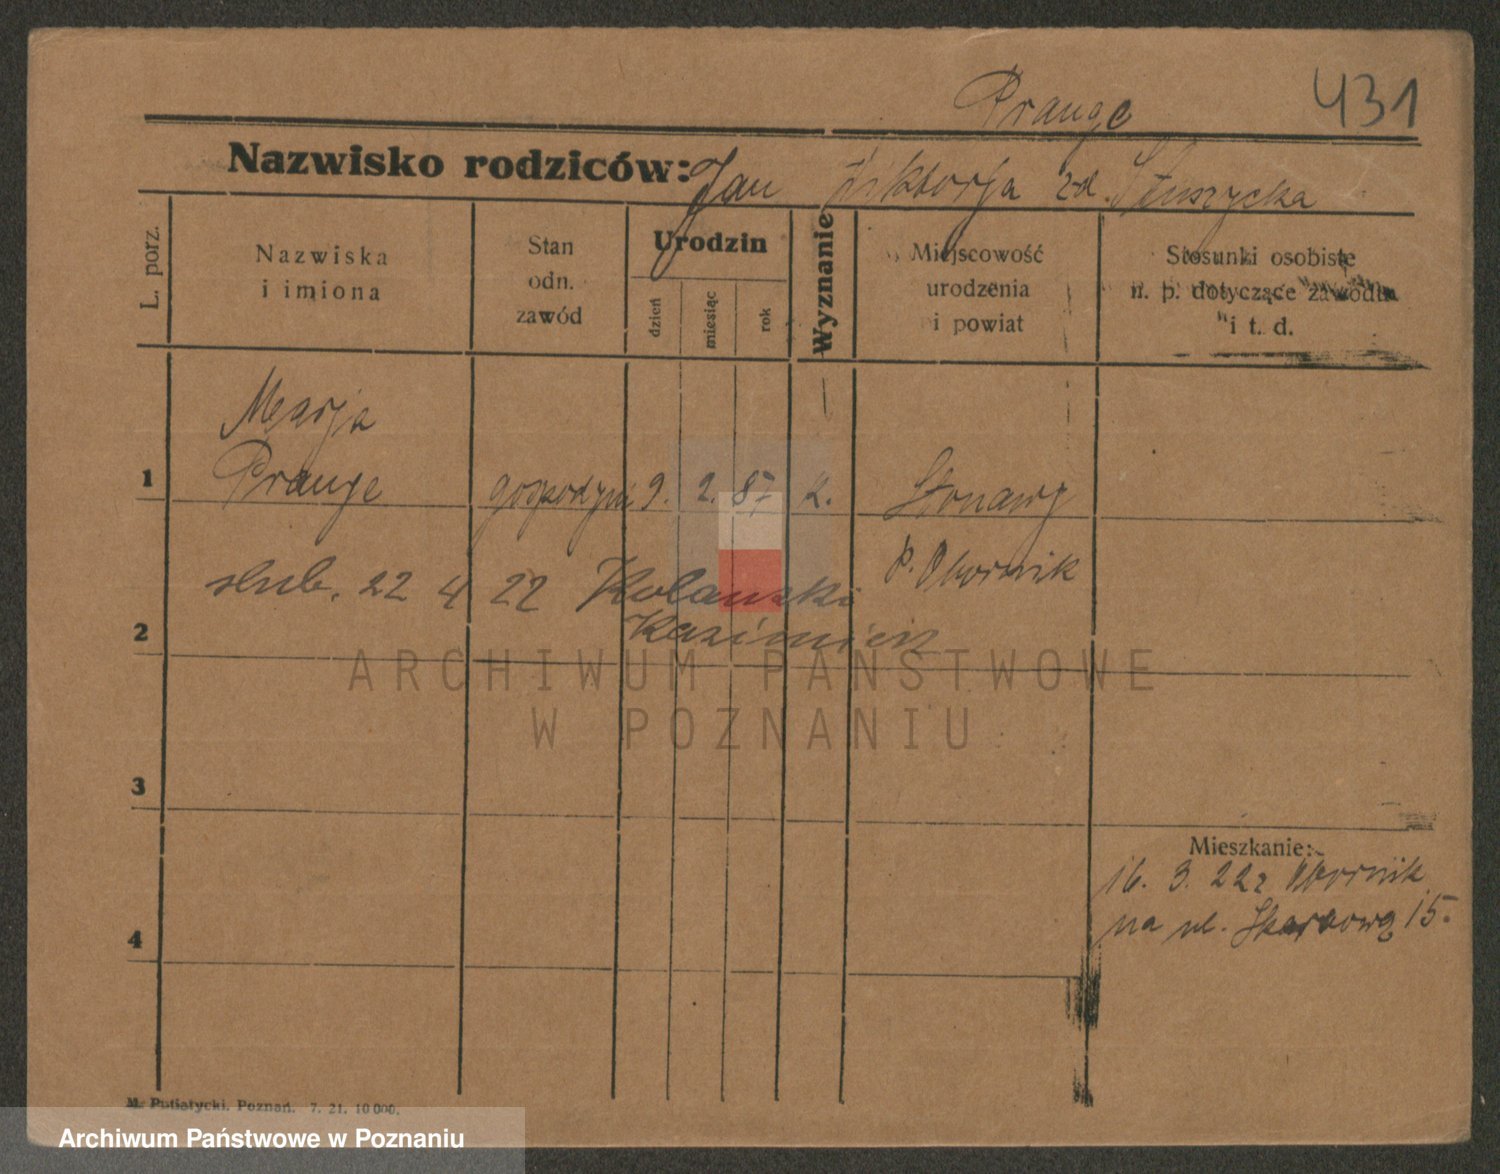 431
Prange
Nazwisko rodziców: Jan Wiktorja zd.
L. porz.
Nazwiska
i imiona
Stan
odn.
zawód
Urodzin
dzień
miesiąc
rok
Wyznanie
Miejscowość
urodzenia
i powiat
Stosunki osobiste
n. p. dotyczące zawodu
i t. d.
Marja
1 Prange gospodyni 9. 2. 87 k. Stonawy
p. Obornik
slub. 22 4 22 Kolanski
2 Kazimierz
3
Mieszkanie:
16. 3. 22 z Obornik
4 na ul. Skarbową 15.
M. Putiatycki. Poznań. 7. 21. 10 000.
ARCHIWUM PAŃSTWOWE
W POZNANIU
Archiwum Państwowe w Poznaniu